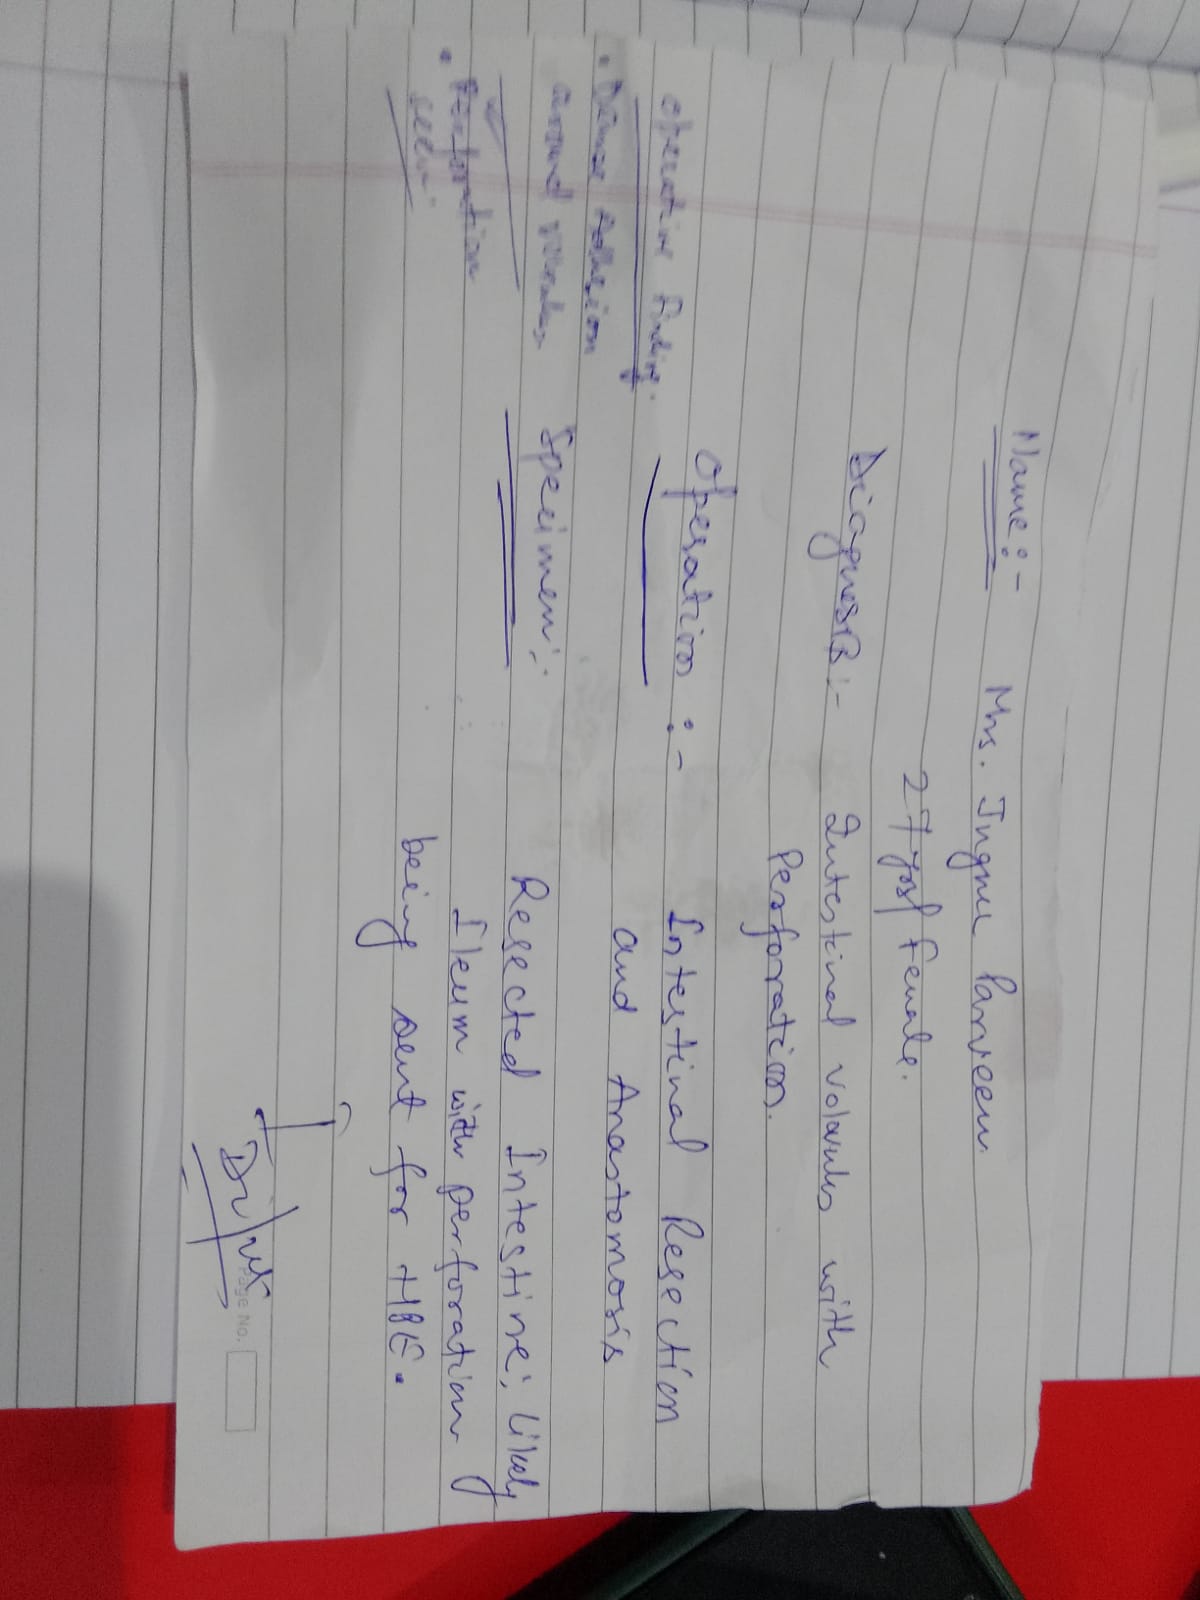 Name:- Mrs. Ingnu Parveen
27 yrs/ Female.
Diagnosis:- Intestinal volvulus with
Perforation.
Operation:- Intestinal Resection
and Anastomosis
Specimen:- Resected Intestine; likely
Ileum with perforation
being sent for HBE.
Operative finding.
• Dense Adhesion
around
• Perforation
seen
Dr
Page No.